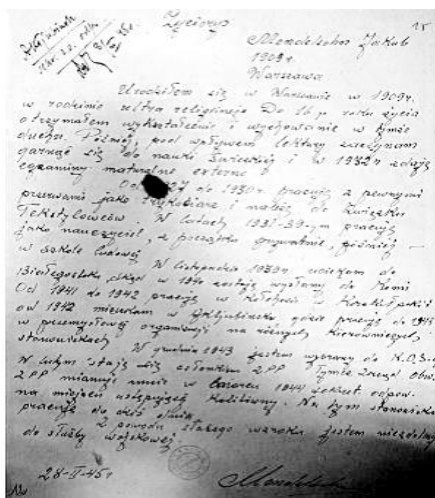 Życiorys
15
Mendelssohn Jakub
1909r.
Warszawa
Urodziłem się w Warszawie w 1909r.
w rodzinie ultra religijnej Do 16 roku życia
otrzymałem wykształcenie i wychowanie w tymże
duchu. Później, pod wpływem lektury zaczynam
garnąć się do nauki świeckiej i w 1932r zdaję
egzaminy maturalne externo
Od do 1930r. pracuję z pewnymi
przerwami jako trykotiarz i należę do związku
Tekstylowców. W latach 1931-39-ym pracuję
jako nauczyciel, z początku prywatnie, później —
w szkole ludowej
W listopadzie 1939r. uciekam do
Białegostoku skąd w 1940 zostaję wysłany do Komi
Od 1941 do 1942 pracuję w Kołchozie w
od 1942 mieszkam w Aktjubińsku gdzie pracuję do 1945
w przemysłowej organizacji na różnych kierowniczych
stanowiskach
W grudniu 1943 jestem wybrany do K.O.S-
W lutym staję się członkiem ZPP. Tymże Zarząd Obw.
ZPP mianuje mnie w 1944 sekret. odpow.
na miejsce ustępującej Na tym stanowisku
pracuję do dziś dnia.
Z powodu słabego wzroku jestem niezdolny
do służby wojskowej.
28-II-45r